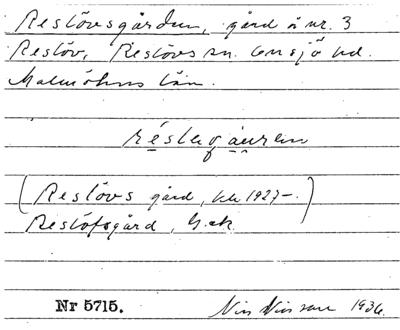 Restövsgården, gård å nr. 3
Restöv, Restövs sn. Onsjö hd.
Malmöhus län.
(Restövs gård, kb 1927–.)
Restöfsgård, G.ek.
Nr 5715.
1936.